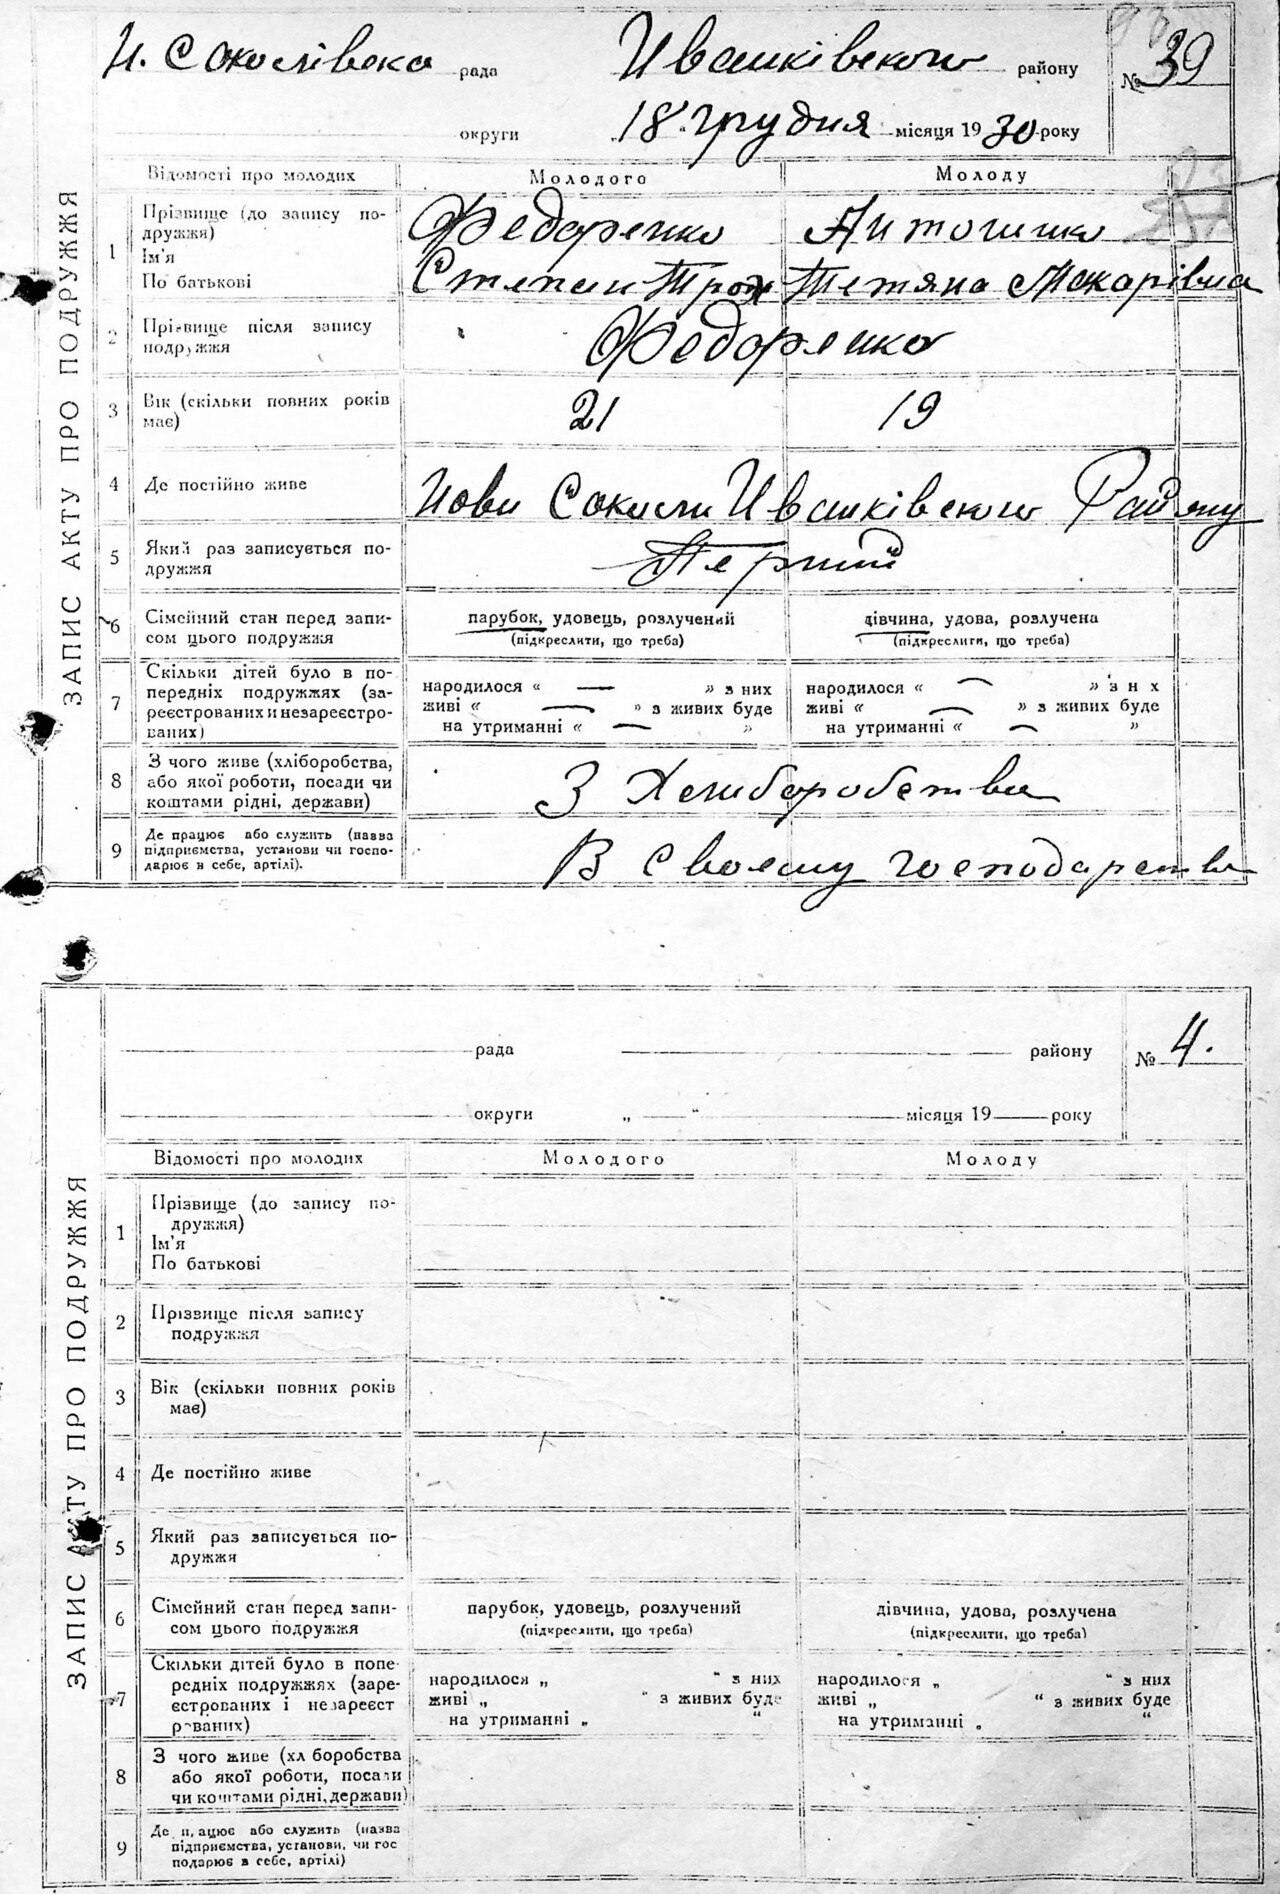 Н. Соколівска рада Ивашківского району № 39
округи „18" грудня місяця 1930 року
ЗАПИС АКТУ ПРО ПОДРУЖЖЯ
Відомості про молодих Молодого Молоду
1 Прізвище (до запису по- Федоренко Антоненко
дружжя)
Ім'я
По батькові Степан Троx Тетяна Макарівна
2 Прізвище після запису Федоренко
подружжя
3 Вік (скільки повних років 21 19
має)
4 Де постійно живе Нови Соколи Ивашківского Району
5 Який раз записується по- Перший
дружжя
6 Сімейний стан перед запи- парубок, удовець, розлучений дівчина, удова, розлучена
сом цього подружжя (підкреслити, що треба) (підкреслити, що треба)
7 Скільки дітей було в по-
передніх подружжях (за- народилося « — » з них народилося « — » з н х
реєстрованих и незареєстро- живі « — » з живих буде живі « — » з живих буде
ваних) на утриманні « — » на утриманні « — »
8 З чого живе (хліборобства,
або якої роботи, посади чи З Хлиборобства
коштами рідні, держави)
Де працює або служить (назва
9 підприємства, установи чи госпо- В своему господарстві
дарює в себе, артілі).
рада району № 4.
округи „ " місяця 19 року
ЗАПИС АКТУ ПРО ПОДРУЖЖЯ
Відомості про молодих Молодого Молоду
1 Прізвище (до запису по-
дружжя)
Ім'я
По батькові
2 Прізвище після запису
подружжя
3 Вік (скільки повних років
має)
4 Де постійно живе
5 Який раз записується по-
дружжя
6 Сімейний стан перед запи- парубок, удовець, розлучений дівчина, удова, розлучена
сом цього подружжя (підкреслити, що треба) (підкреслити, що треба)
7 Скільки дітей було в попе-
редніх подружжях (заре- народилося „ " з них народилося „ " з них
єстрованих і незареєст живі „ " з живих буде живі „ " з живих буде
рованих) на утриманні „ " на утриманні „ "
8 З чого живе (хл боробства
або якої роботи, посади
чи коштами рідні, держави)
Де працює або служить (назва
9 підприємства, установи, чи гос
подарює в себе, артілі)